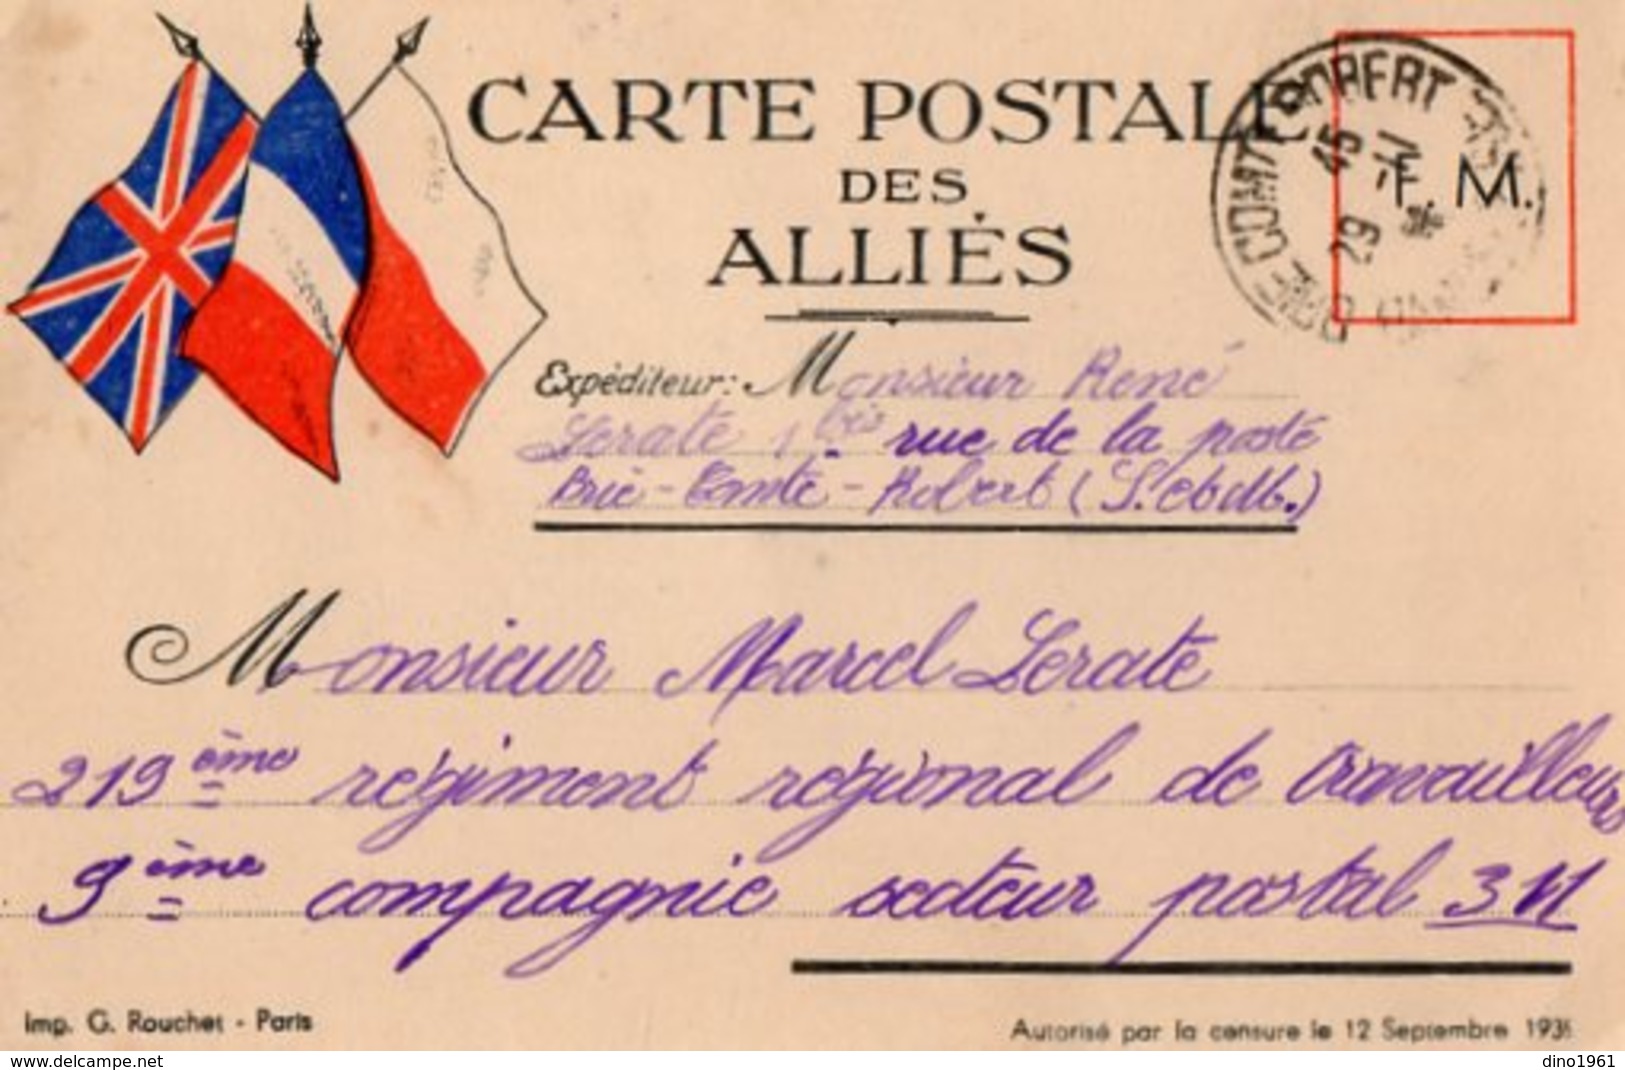 CARTE POSTALE
DES
ALLIÉS
F. M.
BRIE COMTE ROBERT
45
29 -11
Expéditeur: Monsieur René
Lerate 1 bis rue de la poste
Brie-Comte-Robert (S. et M.)
Monsieur Marcel Lerate
219ème régiment régional de travailleurs
9ème compagnie secteur postal
Imp. G. Rouchet - Paris
Autorisé par la censure le 12 Septembre
www.delcampe.net
dino1961